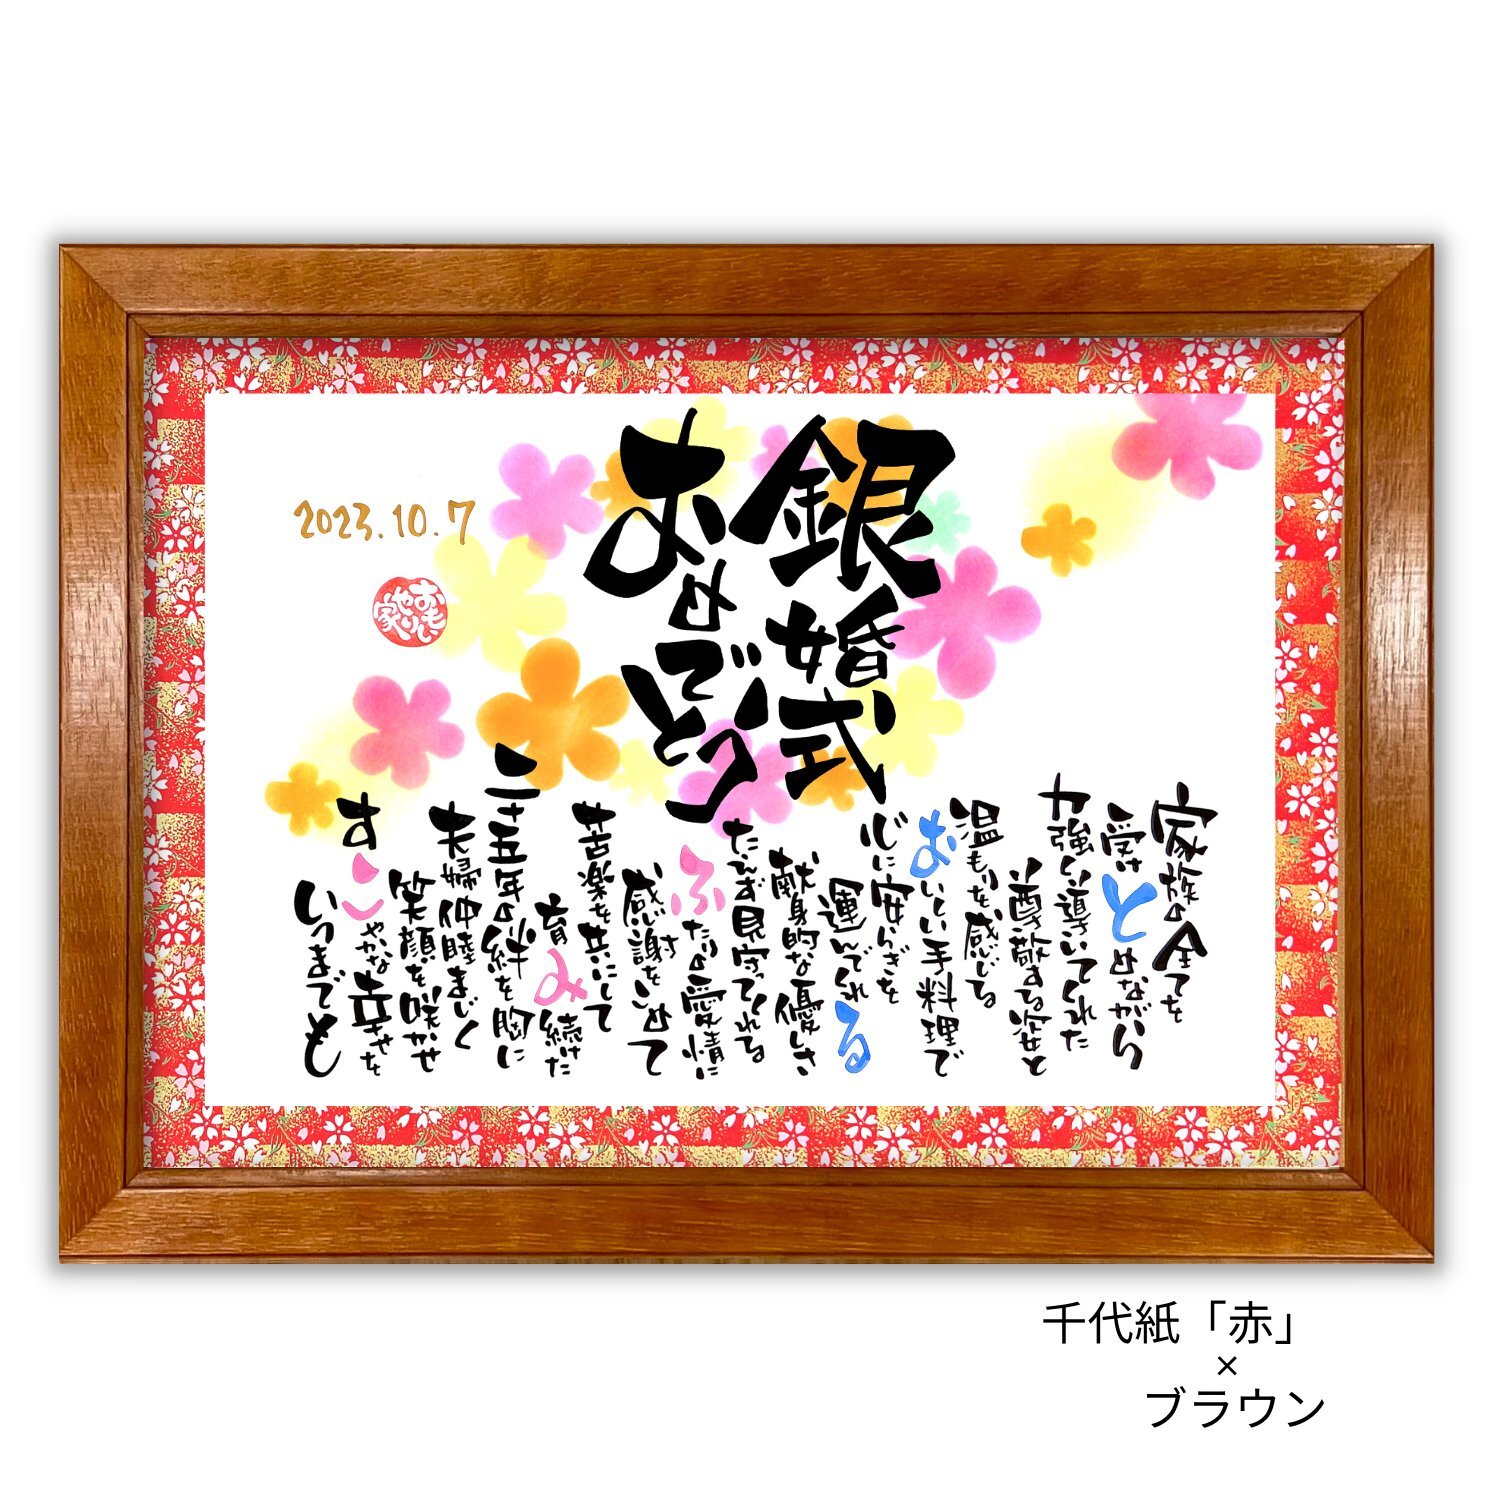 銀婚式
おめでとう
2023.10.7
おもいやり家
家族の全てを
受けとめながら
力強く導いてくれた
尊敬する姿と
温もりを感じる
おいしい手料理で
心に安らぎを
運んでくれる
献身的な優しさ
たえず見守ってくれる
ふたりの愛情に
感謝をこめて
苦楽を共にして
育み続けた
二十五年の絆を胸に
夫婦仲睦まじく
笑顔を咲かせ
すこやかな幸せを
いつまでも
千代紙「赤」
×
ブラウン